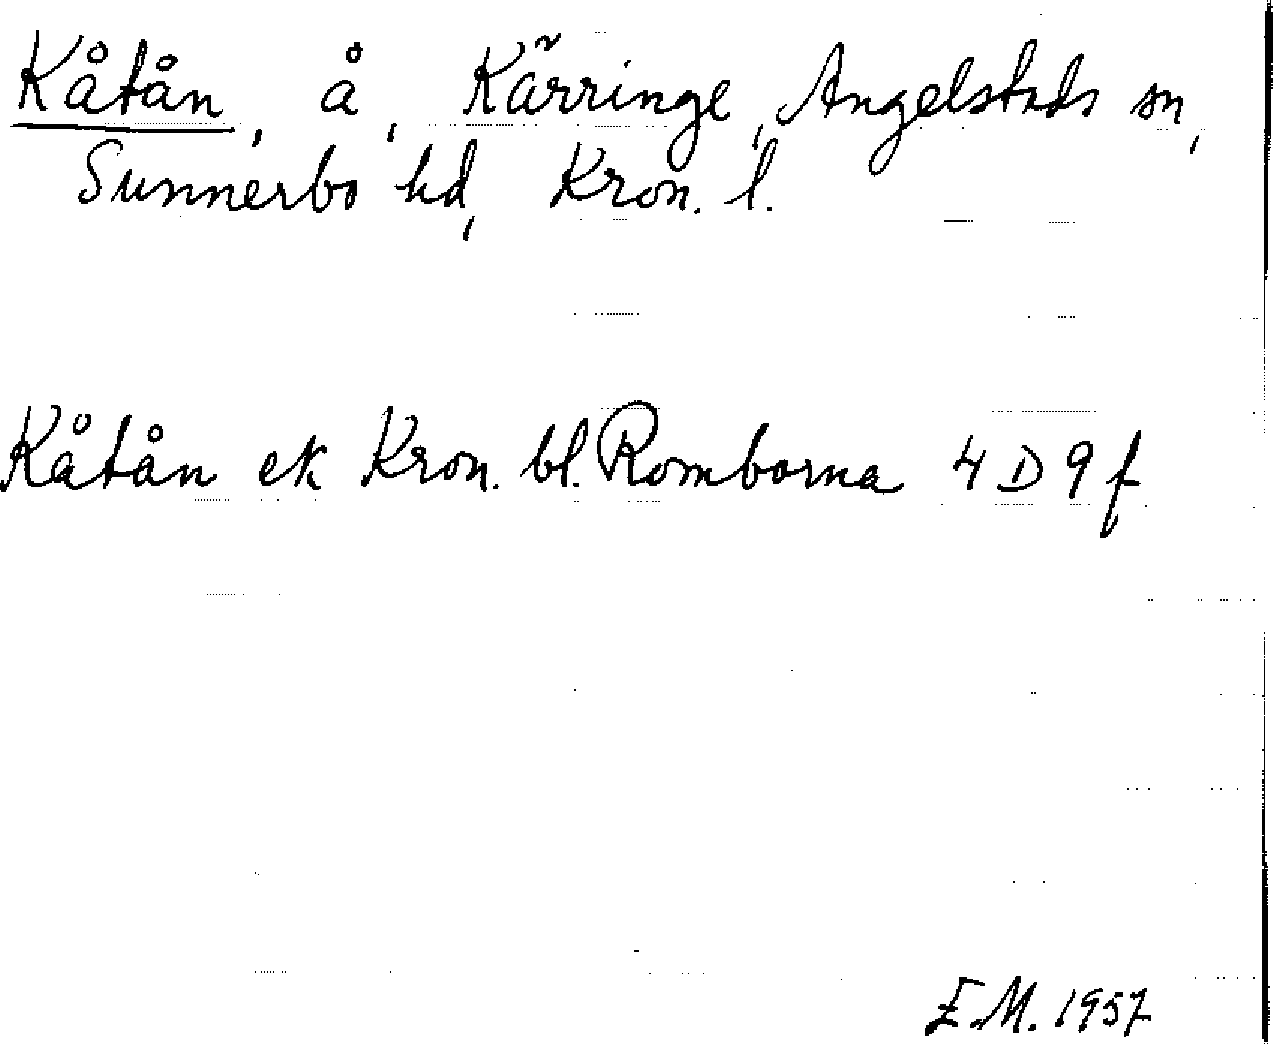 Kåtån, å, Kärringe, Angelstads sn,
Sunnerbo hd, Kron. l.
Kåtån ek Kron. bl. Romborna 4 D 9 f
E.M. 1957